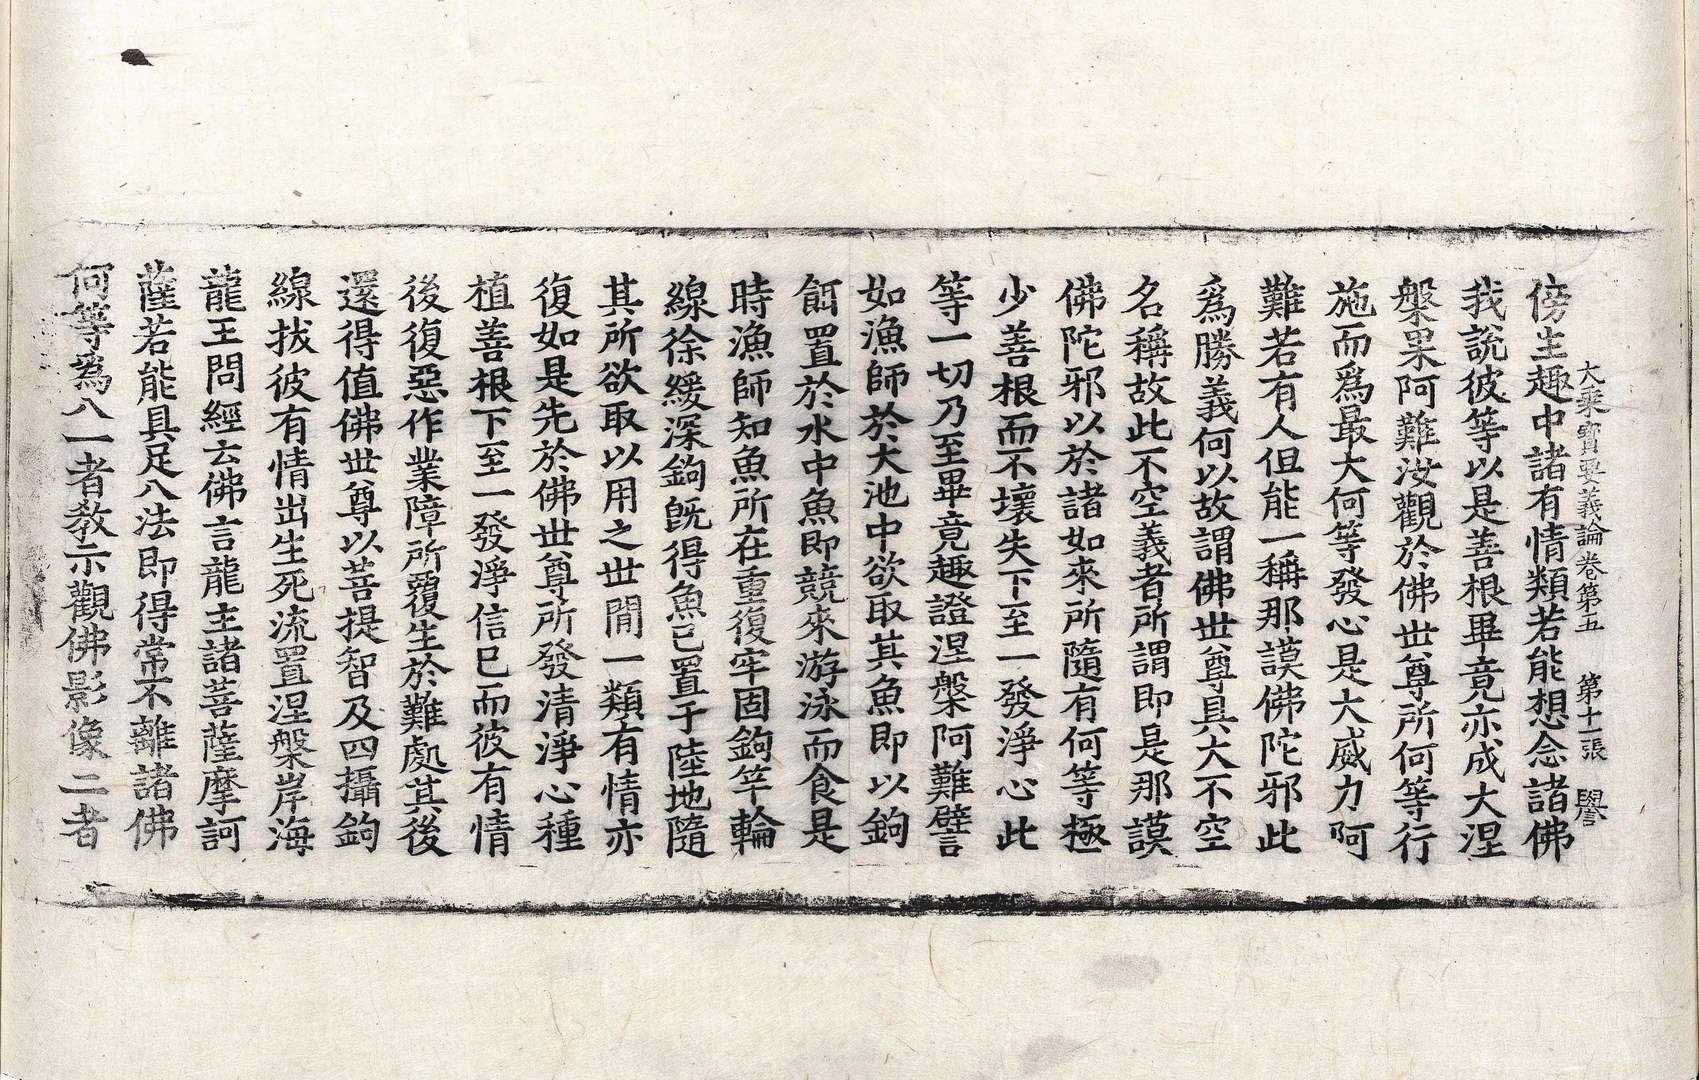 大乘寶要義論卷第五 第十一張 譽
傍生趣中諸有情類若能想念諸佛
我說彼等以是善根畢竟亦成大涅
槃果阿難汝觀於佛世尊所何等行
施而為最大何等發心是大威力阿
難若有人但能一稱那謨佛陀邪此
為勝義何以故謂佛世尊具大不空
名稱故此不空義者所謂即是那謨
佛陀邪以於諸如來所隨有何等極
少善根而不壞失下至一發淨心此
等一切乃至畢竟趣證涅槃阿難譬
如漁師於大池中欲取其魚即以鉤
餌置於水中魚即競來游泳而食是
時漁師知魚所在重復牢固鉤竿輪
線徐緩深鉤旣得魚已置于陸地隨
其所欲取以用之世間一類有情亦
復如是先於佛世尊所發清淨心種
植善根下至一發淨信已而彼有情
後復惡作業障所覆生於難處其後
還得值佛世尊以菩提智及四攝鉤
線拔彼有情出生死流置涅槃岸海
龍王問經云佛言龍主諸菩薩摩訶
薩若能具足八法即得常不離諸佛
何等為八一者教示觀佛影像二者